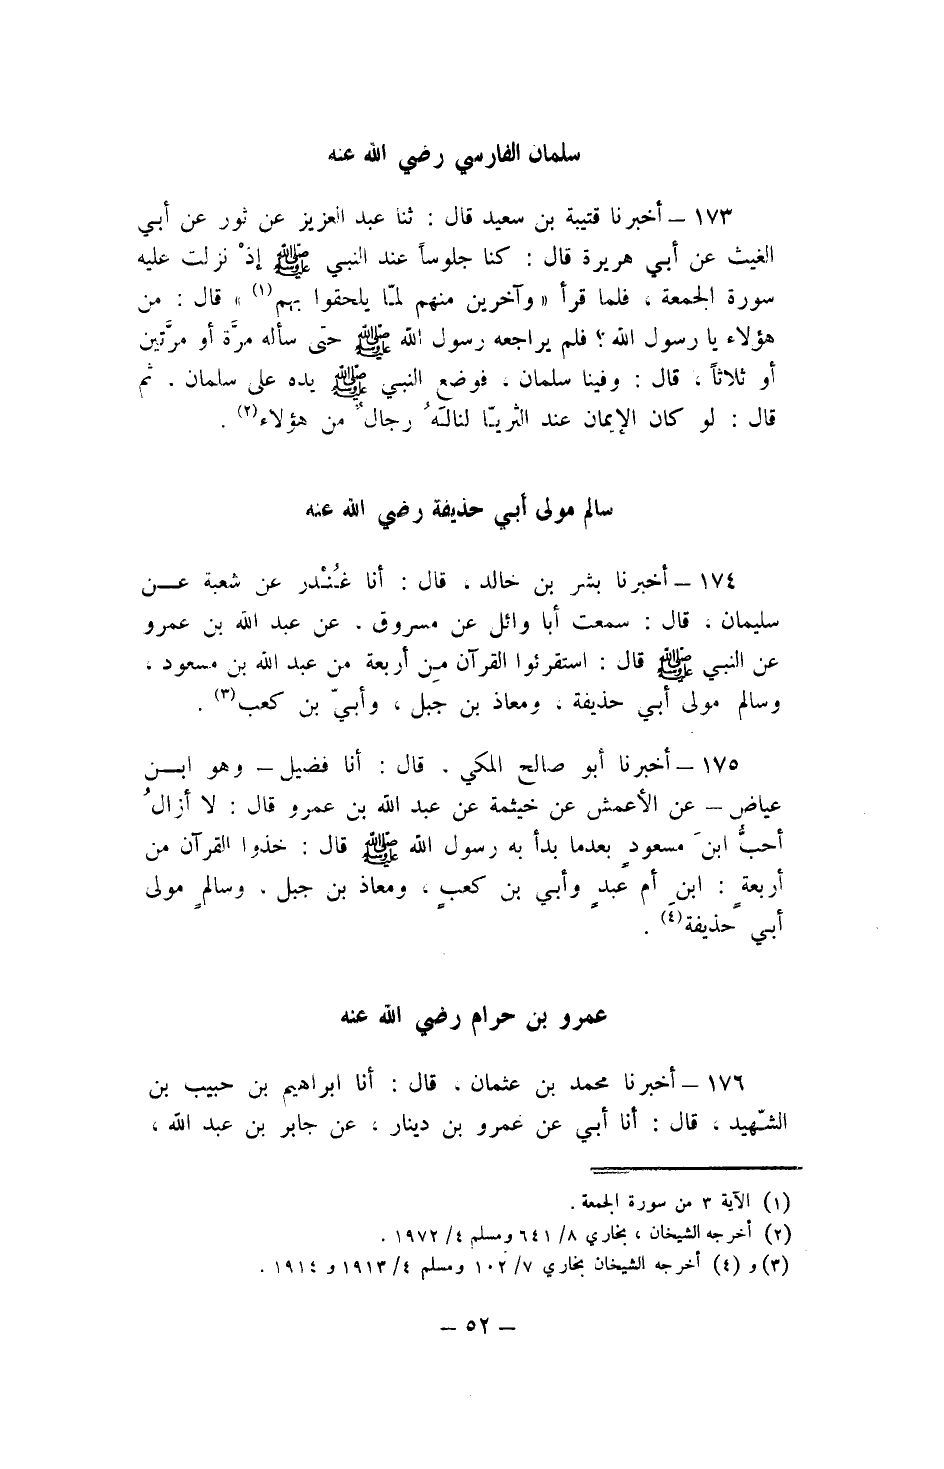 سلمان الفارسي رضي الله عنه
١٧٣ – أخبرنا قتيبة بن سعيد قال : ثنا عبد العزيز عن ثور عن أبي
الغيث عن أبي هريرة قال : كنا جلوساً عند النبي ﷺ إذْ نزلت عليه
سورة الجمعة ، فلما قرأ « وآخرين منهم لمّا يلحقوا بهم(١) » قال : من
هؤلاء يا رسول الله ؟ فلم يراجعه رسول الله ﷺ حتى سأله مرَّة أو مرَّتين
أو ثلاثاً ، قال : وفينا سلمان ، فوضع النبي ﷺ يده على سلمان . ثم
قال : لو كان الإيمان عند الثريّا لنالَهُ رجالٌ من هؤلاء(٢) .
سالم مولى أبي حذيفة رضي الله عنه
١٧٤ – أخبرنا بشر بن خالد ، قال : أنا غُنْدر عن شعبة عـن
سليمان ، قال : سمعت أبا وائل عن مسروق . عن عبد الله بن عمرو
عن النبي ﷺ قال : استقرئوا القرآن من أربعة من عبد الله بن مسعود ،
وسالم مولى أبي حذيفة ، ومعاذ بن جبل ، وأبيّ بن كعب(٣) .
١٧٥ – أخبرنا أبو صالح المكي . قال : أنا فضيل – وهو ابـن
عياض – عن الأعمش عن خيثمة عن عبد الله بن عمرو قال : لا أزالُ
أحبُّ ابنَ مسعودٍ بعدما بدأ به رسول الله ﷺ قال : خذوا القرآن من
أربعةٍ : ابنِ أم عبدٍ وأبي بن كعبٍ ، ومعاذ بن جبل . وسالمٍ مولى
أبي حذيفة(٤) .
عمرو بن حرام رضي الله عنه
١٧٦ – أخبرنا محمد بن عثمان . قال : أنا ابراهيم بن حبيب بن
الشّهيد ، قال : أنا أبي عن عمرو بن دينار ، عن جابر بن عبد الله ،
(١) الآية ٣ من سورة الجمعة .
(٢) أخرجه الشيخان ، بخاري ٨/ ٦٤١ ومسلم ٤/ ١٩٧٢ .
(٣) و (٤) أخرجه الشيخان بخاري ٧/ ١٠٢ ومسلم ٤/ ١٩١٣ و ١٩١٤ .
– ٥٢ –